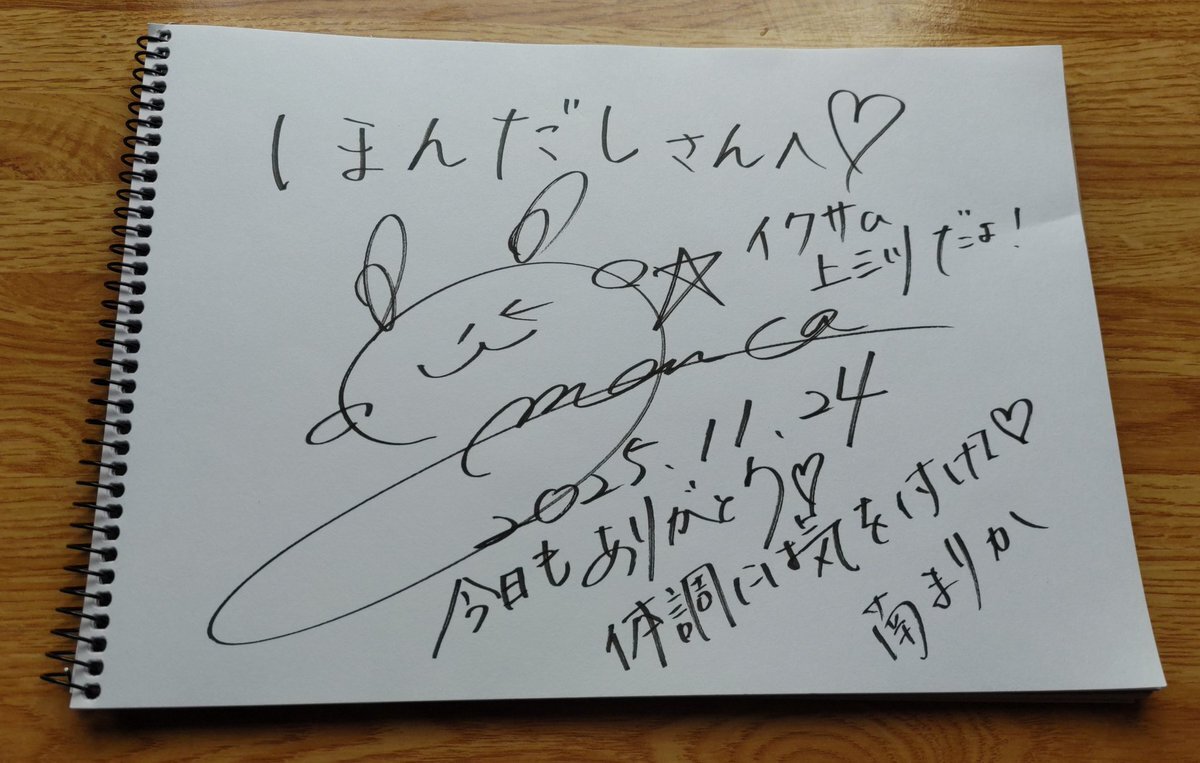 しほんだしさんへ♡
イクサの
上ミツだよ!
2025.11.24
今日もありがとう♡
体調には気を付けて♡
南まりか